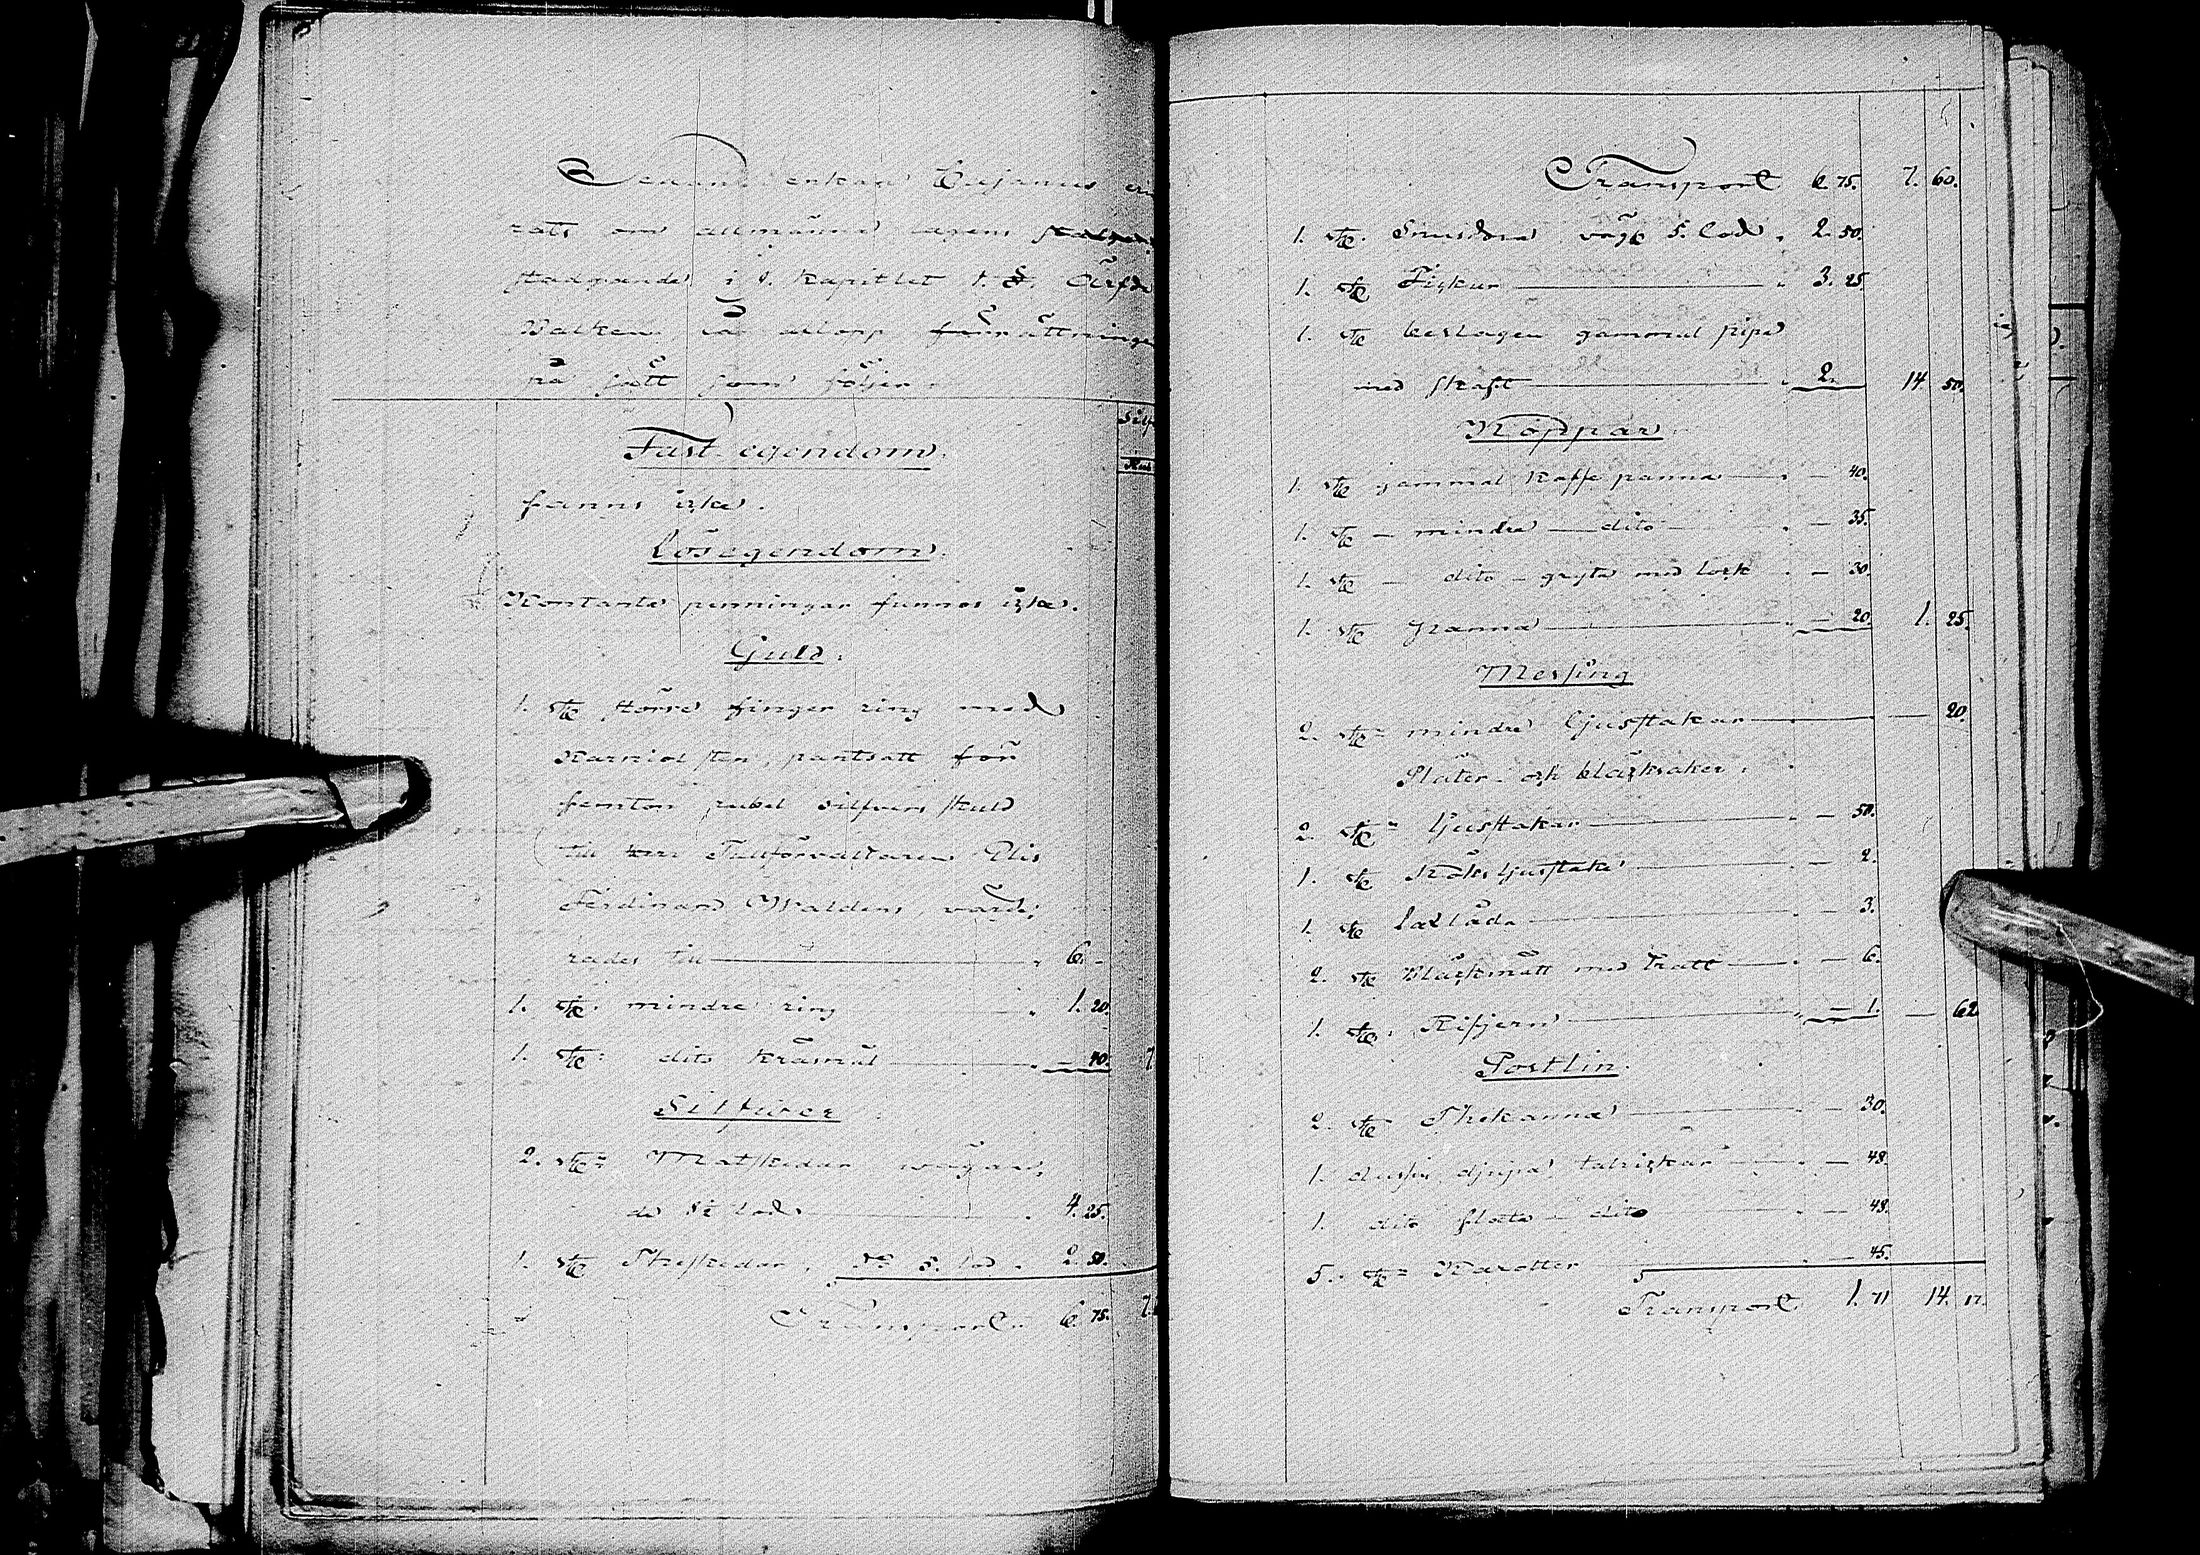 enkan er
rats om allmänna lagens
stadgande i 9. Kapitlet 1. §. Ärfda
Balken, så aflopp förrättningen
på sätt som följer.
Silf
Rub
Fast egendom.
fanns icke.
Lösegendom.
Kontanta penningar funnos icke.
Guld.
1. st. större finger ring med
Karniol sten, pantsatt för
femton rubel silfvers skuld
till herr Tullförvaltaren Elis
Ferdinand Waldens, värde;
rades till 6. -
1. st. mindre ring 1. 20.
1. st. dito kråsnål - 40. 7
Silfver
2. st. Matskedar wägan;
de 8½ lod 4. 25.
1. st. Theskedar, 5. lod 2. 50.
Transport 6. 75. 7.
Transport 6. 75. 7. 60.
1. st. Snusdosa vägt 5. lod 2. 50.
1. st. Fickur 3. 25.
1. st. beslagen gammal pipa
med skaft 2. 14 50.
Koppar
1. st. gammal kaffe panna - 40.
1. st. - mindre - dito - - 35.
1. st. - dito - gryta med lock - 30.
1. st. panna - 20. 1. 25.
Messing
2. st. mindre ljusstakar - 20.
Plåter och bläcksaker.
2. st. ljusstakar - 50.
1. st. Köks ljusstake - 2.
1. st. låda - 3.
2. st. Bläckmått med tratt - 6.
1. st. Rifjern - 1. - 62.
Postlin.
2. st. Thekanna - 30.
1. dussin djupa talrickar - 48.
1. dito flata - dito - 48.
5. st. Karotter - 45.
Transport 1. 71 14. 17.